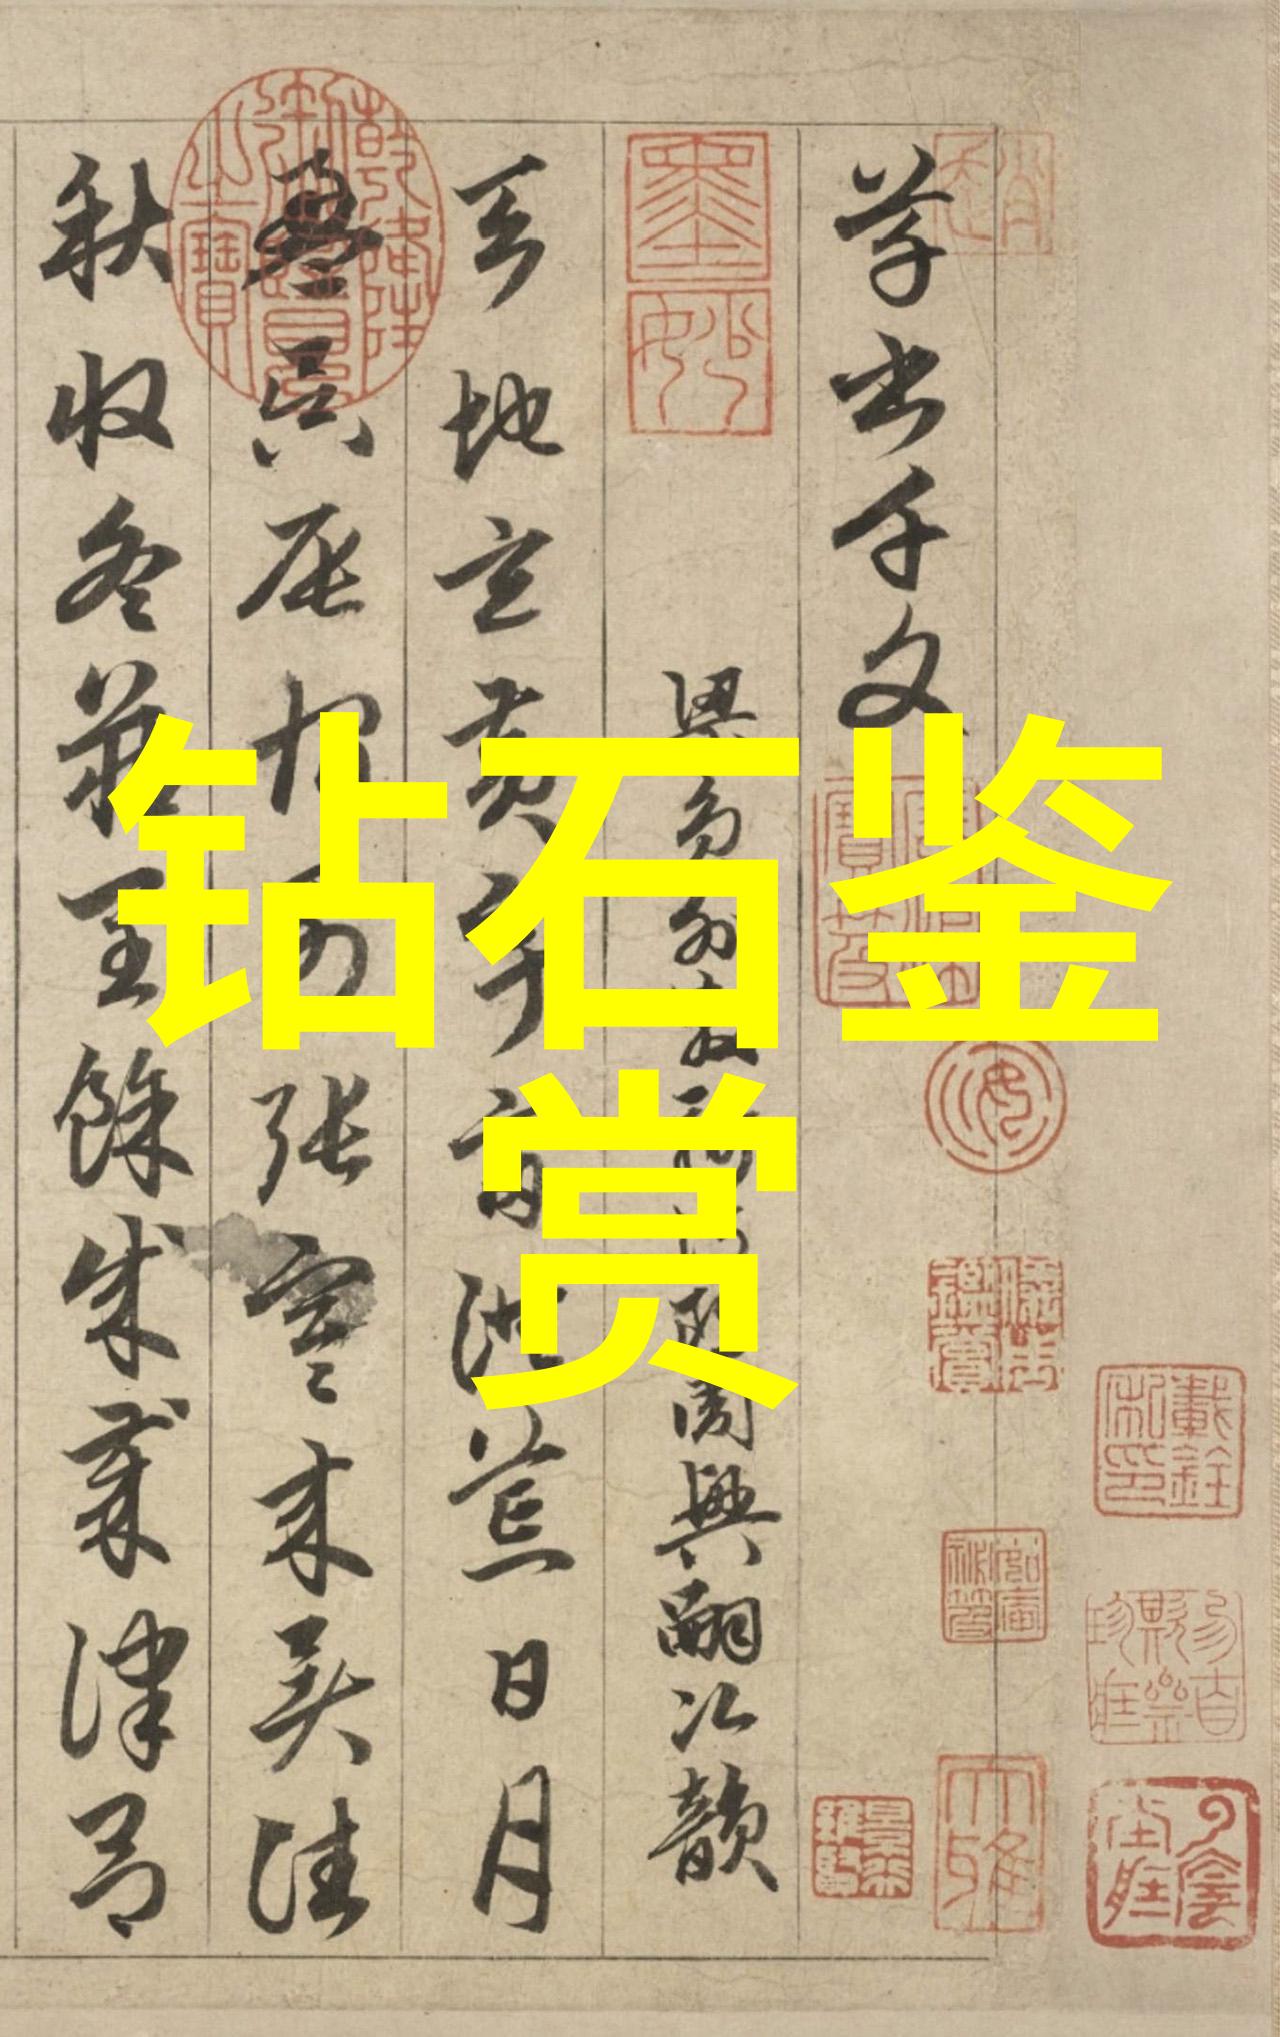 钻石鉴
赏
草書千文
墨妙
梁員外散騎侍郎周興嗣次韻
天地玄黃宇宙洪荒日月
乾隆御覽之寶
盈昃辰宿列張寒來暑往
秋收冬藏閏餘成歲律呂